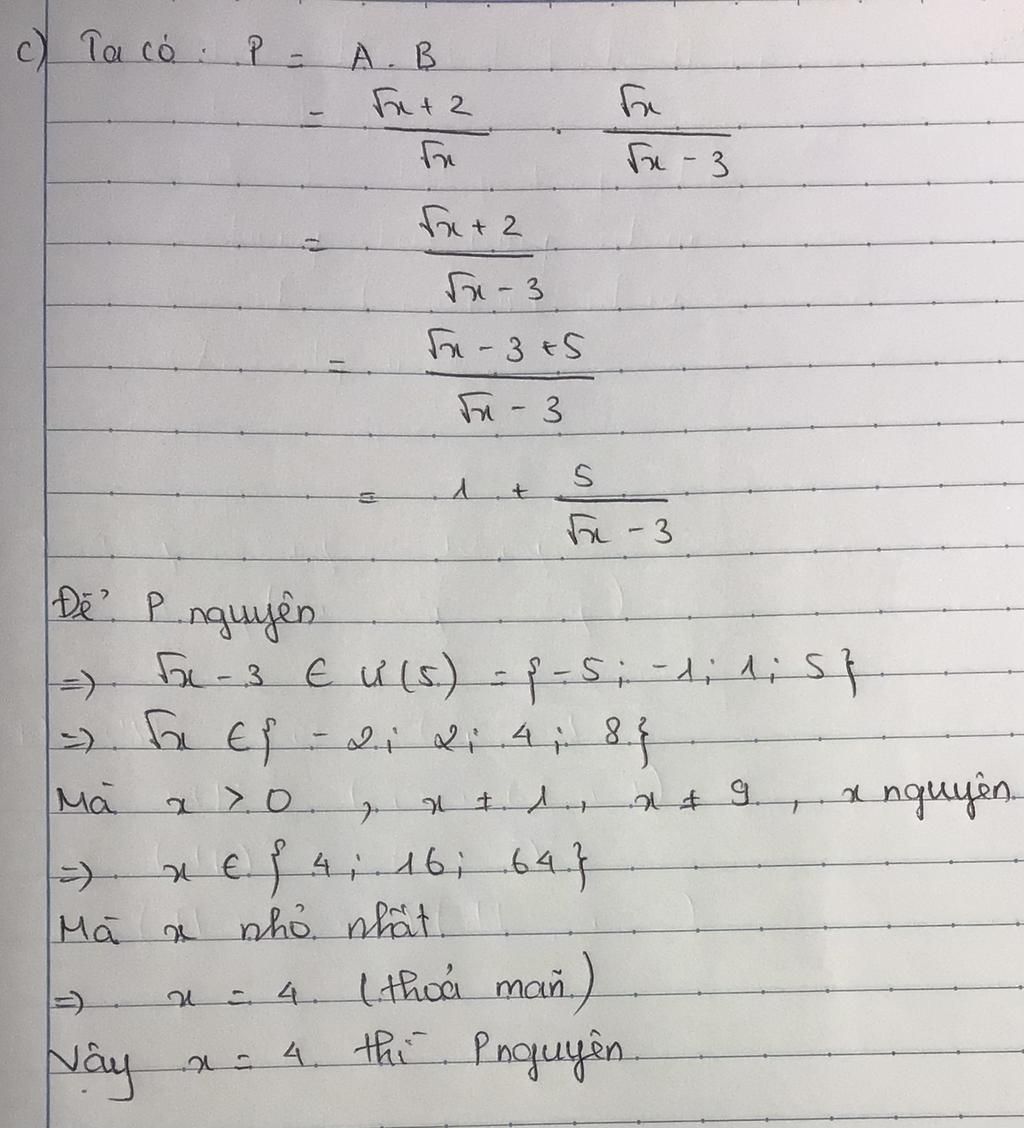 c) Ta có : P = A . B
= \frac{√x + 2}{√x} . \frac{√x}{√x - 3}
= \frac{√x + 2}{√x - 3}
= \frac{√x - 3 + 5}{√x - 3}
= 1 + \frac{5}{√x - 3}
Để P nguyên
=> √x - 3 ∈ Ư(5) = {-5 ; -1 ; 1 ; 5}
=> √x ∈ { -2 ; 2 ; 4 ; 8 }
Mà x > 0 , x ≠ 1 , x ≠ 9 , x nguyên
=> x ∈ { 4 ; 16 ; 64 }
Mà x nhỏ nhất
=> x = 4 (thoả mãn)
Vậy x = 4 thì P nguyên